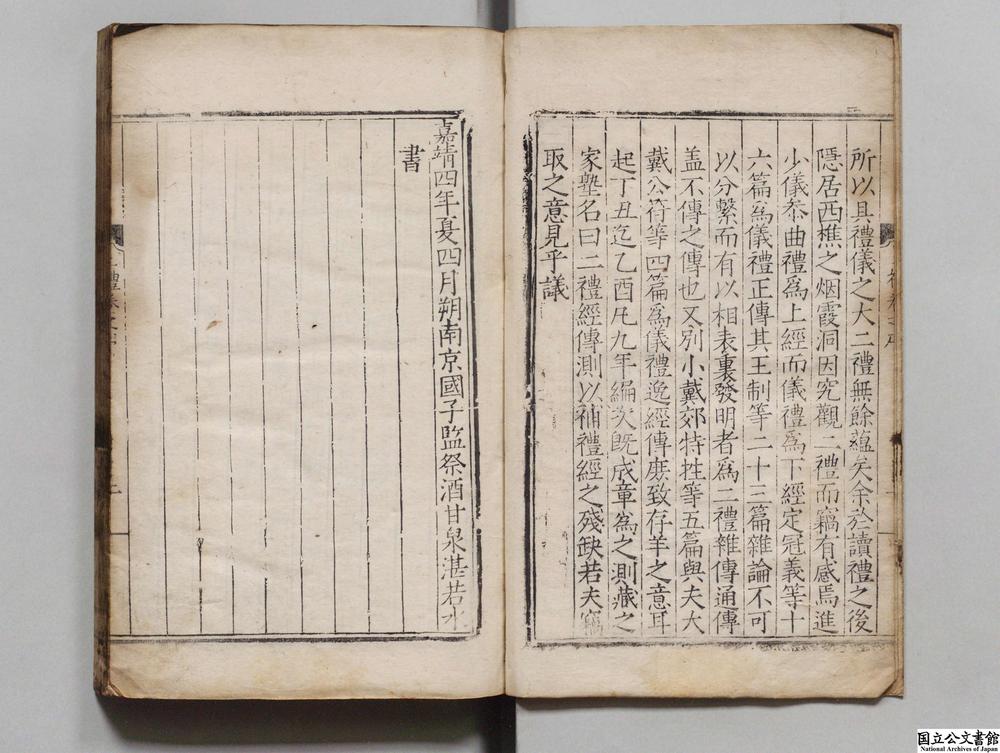 所以具禮儀之大二禮無餘蘊矣余於讀禮之後
隱居西樵之烟霞洞因究觀二禮而竊有感焉進
少儀叅曲禮爲上經而儀禮爲下經定冠義等十
六篇爲儀禮正傳其王制等二十三篇雜論不可
以分繫而有以相表裏發明者爲二禮雜傳通傳
盖不傳之傳也又別小戴郊特牲等五篇與夫大
戴公符等四篇爲儀禮逸經傳庶致存羊之意耳
起丁丑迄乙酉凡九年編次旣成章爲之測藏之
家塾名曰二禮經傳測以補禮經之殘缺若夫竊
取之意見乎議
嘉靖四年夏四月朔南京國子監祭酒甘泉湛若水
書
二禮
二
国立公文書館
National Archives of Japan